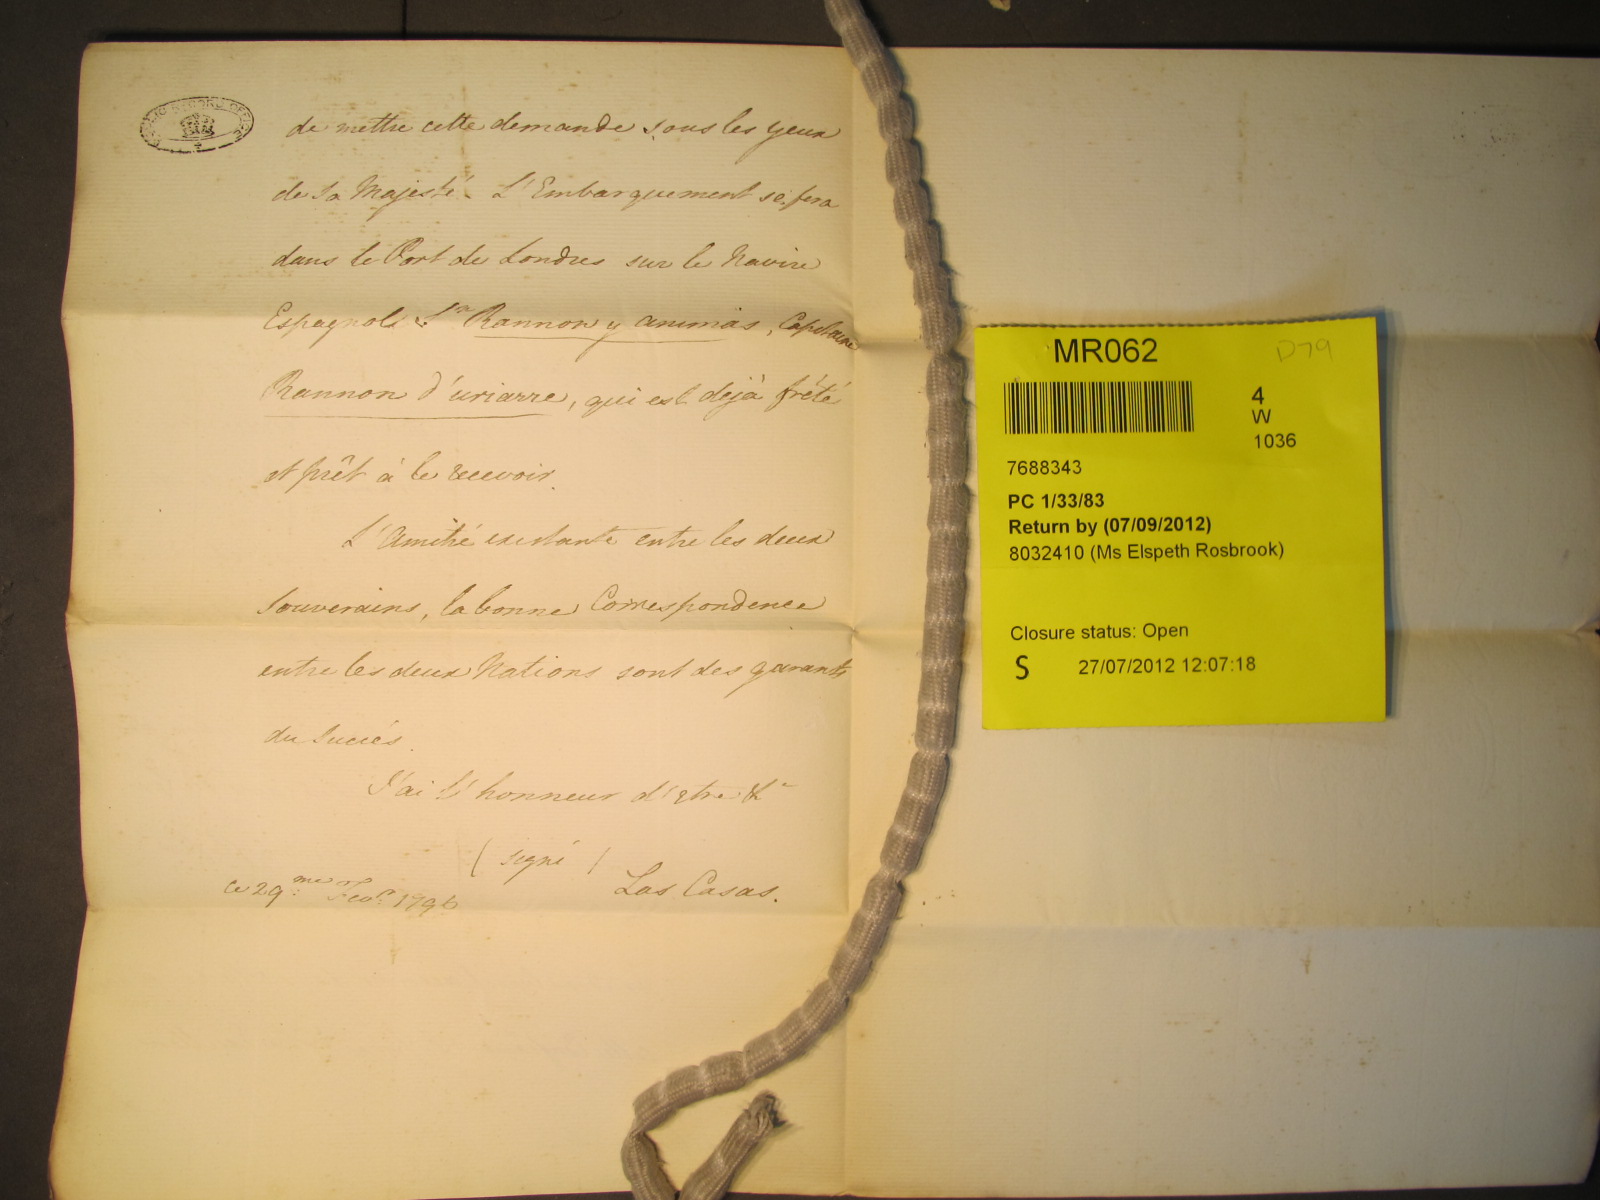 PUBLIC RECORD OFFICE
de mettre cette demande sous les yeux
de Sa Majesté. L'Embarquement se fera
dans le Port de Londres sur le Navire
Espagnol Sn Rannon y animas, Capitaine
Rannon d'uriarre, qui est dejà frété
et prêt à le recevoir.
L'Amitié existante entre les deux
Souverains, la bonne Correspondence
entre les deux Nations sont des garants
du Succés.
J'ai l'honneur d'etre &c
(signé)
Las Casas.
ce 29me Fevr. 1796
MR062
D79
4
W
1036
7688343
PC 1/33/83
Return by (07/09/2012)
8032410 (Ms Elspeth Rosbrook)
Closure status: Open
S 27/07/2012 12:07:18